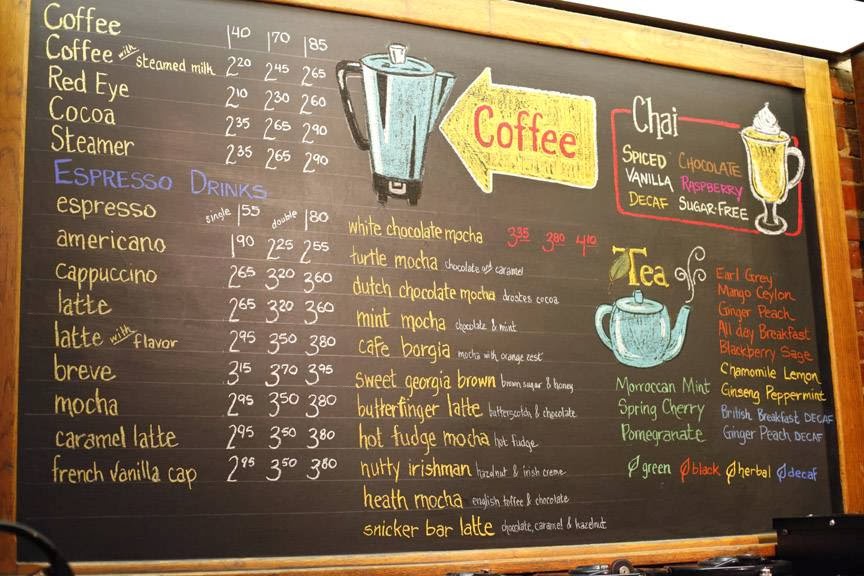 Coffee 1.40 1.70 1.85
Coffee with steamed milk 2.20 2.45 2.65
Red Eye 2.10 2.30 2.60
Cocoa 2.35 2.65 2.90
Steamer 2.35 2.65 2.90
ESPRESSO DRINKS
espresso single 1.55 double 1.80
americano 1.90 2.25 2.55
cappuccino 2.65 3.20 3.60
latte 2.65 3.20 3.60
latte with flavor 2.95 3.50 3.80
breve 3.15 3.70 3.95
mocha 2.95 3.50 3.80
caramel latte 2.95 3.50 3.80
french vanilla cap 2.95 3.50 3.80
Coffee
white chocolate mocha 3.35 3.80 4.10
turtle mocha chocolate and caramel
dutch chocolate mocha drostes cocoa
mint mocha chocolate & mint
cafe borgia mocha with orange zest
sweet georgia brown brown sugar & honey
butterfinger latte butterscotch & chocolate
hot fudge mocha hot fudge
nutty irishman hazelnut & irish creme
heath mocha english toffee & chocolate
snicker bar latte chocolate, caramel & hazelnut
Chai
SPICED CHOCOLATE
VANILLA RASPBERRY
DECAF SUGAR-FREE
Tea
Earl Grey
Mango Ceylon
Ginger Peach
All day Breakfast
Blackberry Sage
Chamomile Lemon
Ginseng Peppermint
British Breakfast DECAF
Ginger Peach DECAF
Moroccan Mint
Spring Cherry
Pomegranate
green black herbal decaf